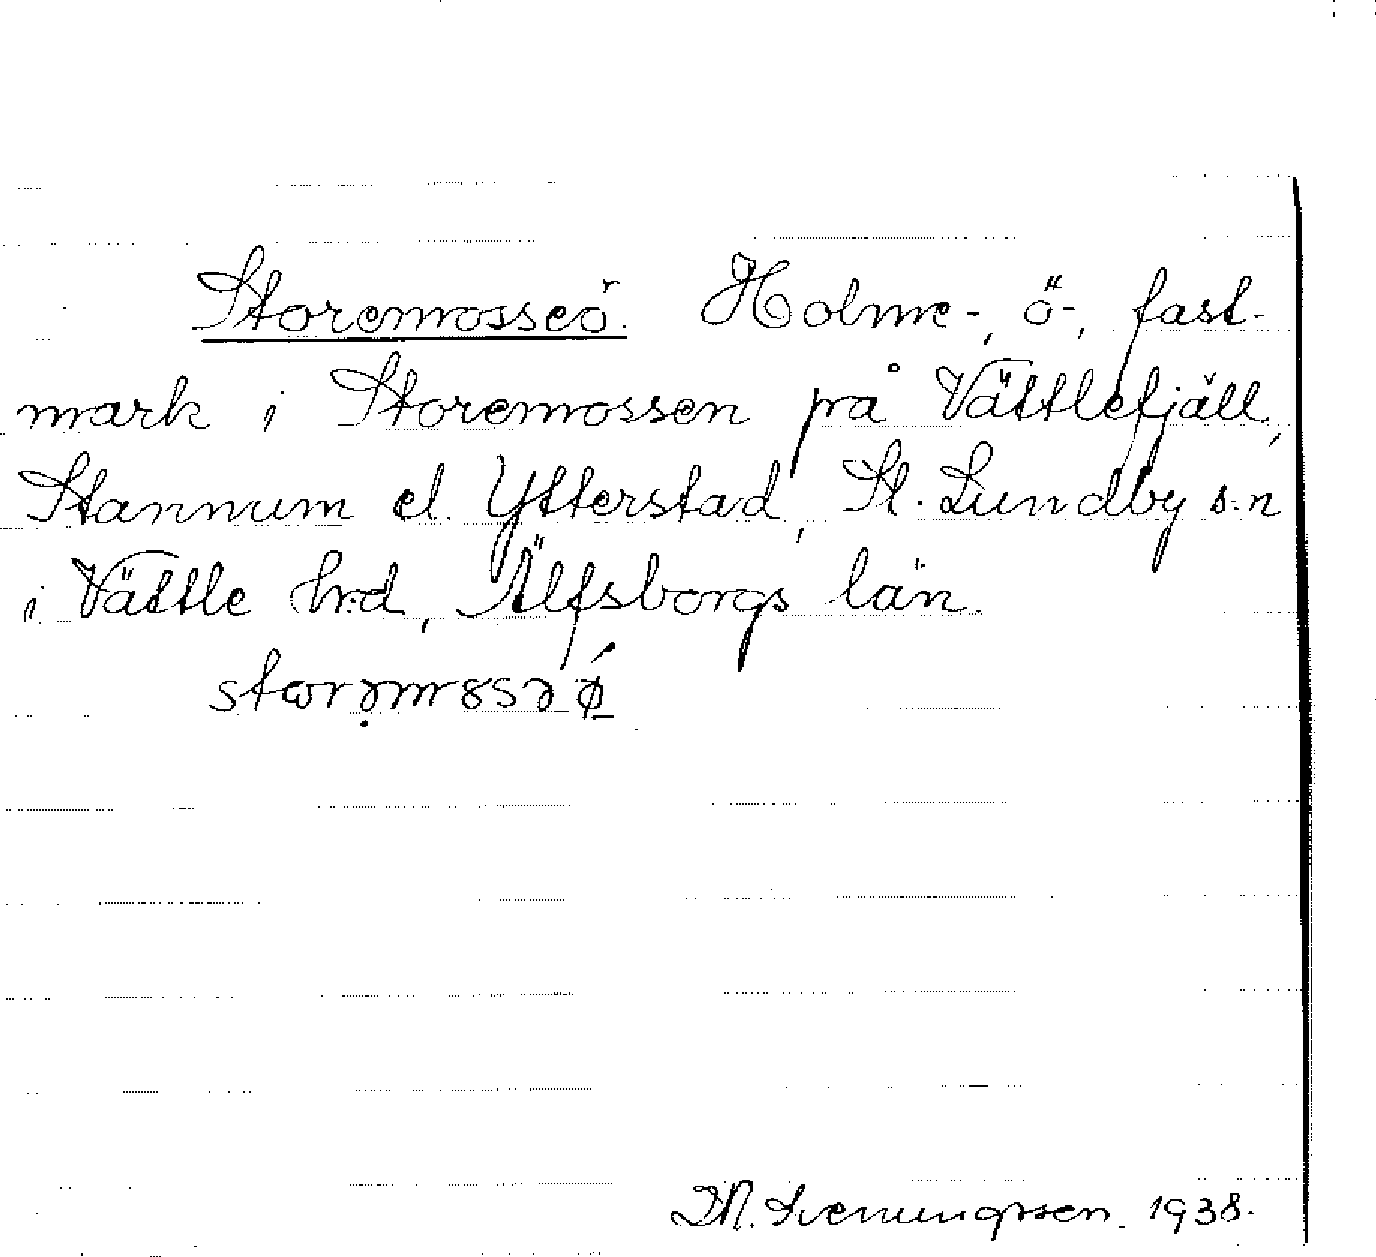 Storemosseö. Holme-, ö-, fast-
mark i Storemossen på Vättlefjäll,
Stannum el. Ytterstad, St. Lundby s-n
i Vättle h:d, Älfsborgs län.
1938.